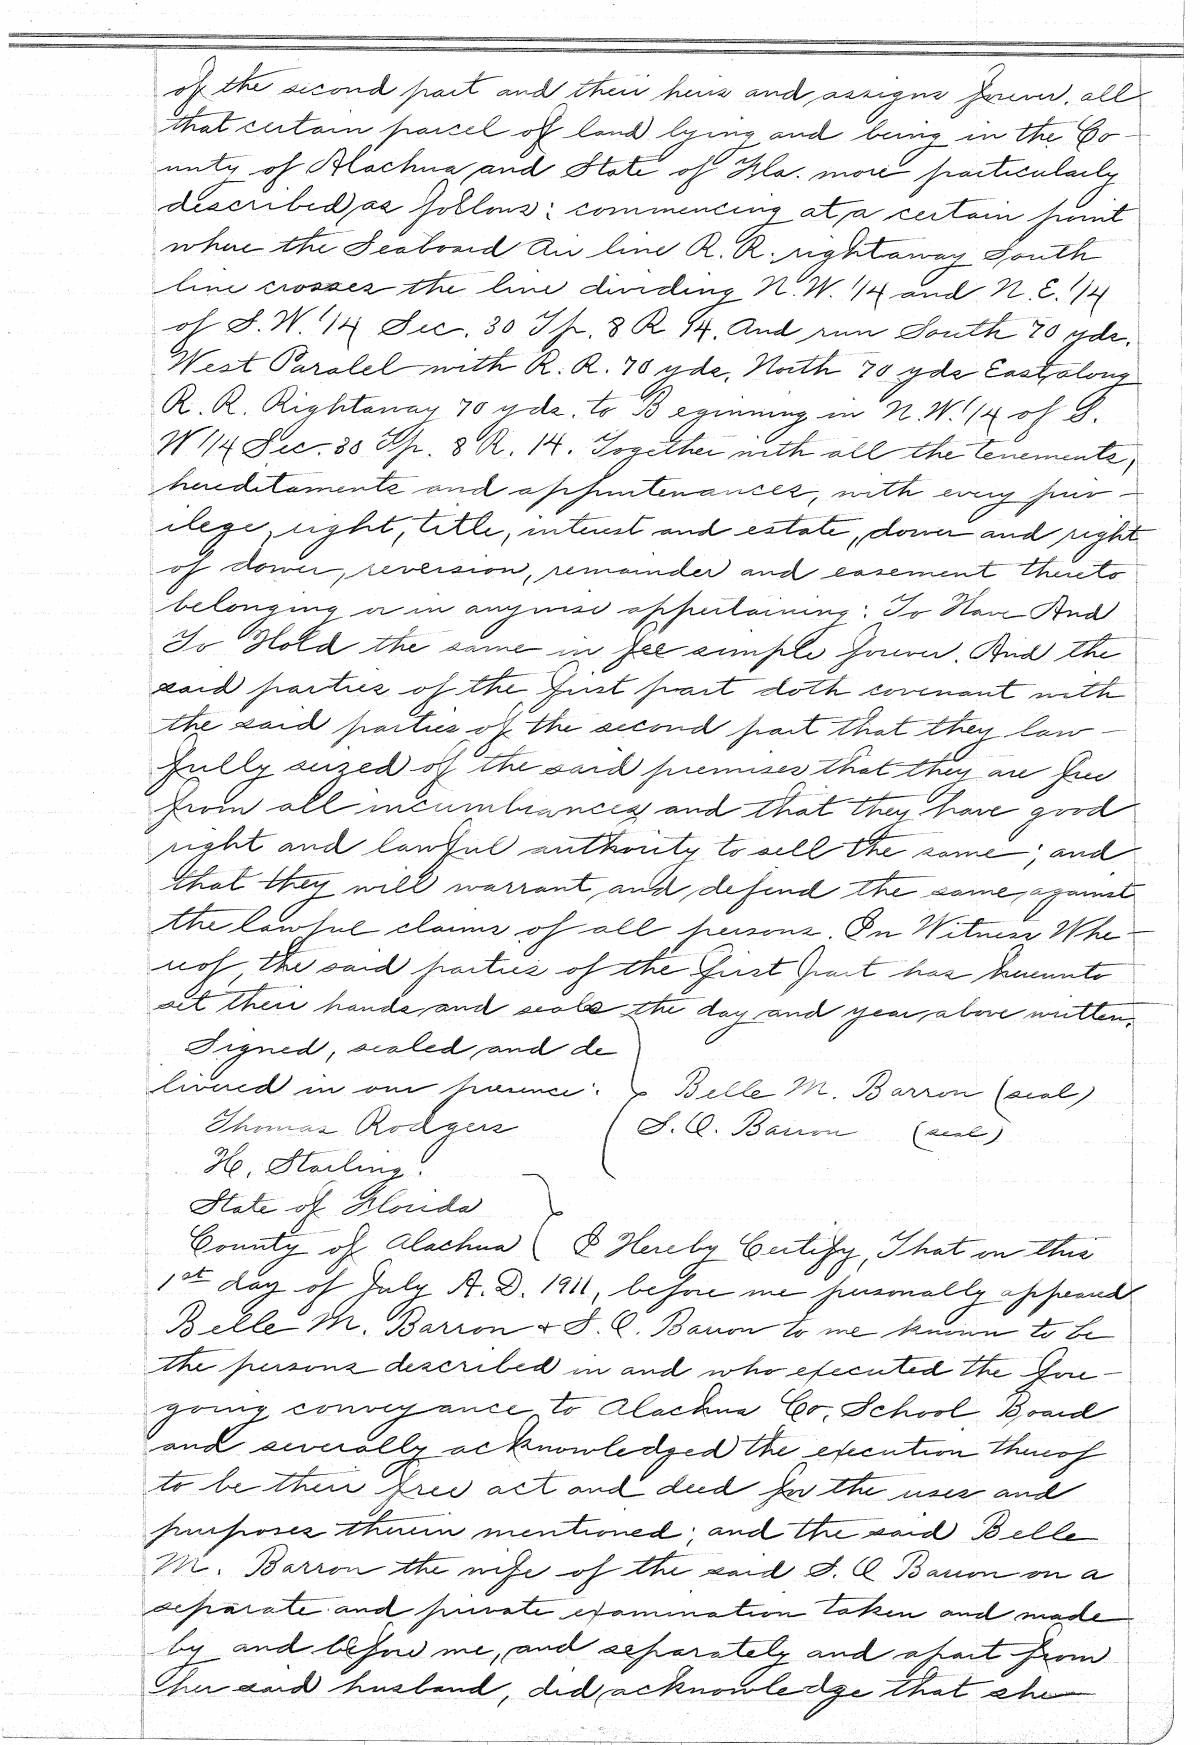 of the second part and their heirs and assigns forever. all
that certain parcel of land lying and being in the Co-
unty of Alachua and State of Fla. more particularly
described as follows: commencing at a certain point
where the Seaboard Air line R. R. rightaway South
line crosses the line dividing N.W. 1/4 and N.E. 1/4
of S.W. 1/4 Sec. 30 Tp. 8 R 14. And run South 70 yds.
West Paralel with R. R. 70 yds, North 70 yds East along
R. R. Rightaway 70 yds. to Beginning in N.W. 1/4 of S.
W 1/4 Sec. 30 Tp. 8 R. 14. Together with all the tenements,
hereditaments and appurtenances, with every priv-
ilege, right, title, interest and estate, dower and right
of dower, reversion, remainder and easement thereto
belonging or in anywise appertaining: To Have And
To Hold the same in fee simple forever. And the
said parties of the first part doth covenant with
the said parties of the second part that they law-
fully seized of the said premises that they are free
from all incumbrances and that they have good
right and lawful authority to sell the same; and
that they will warrant and defend the same against
the lawful claims of all persons. In Witness Whe-
reof, the said parties of the first part has hereunto
set their hands and seals the day and year above written.
Signed, sealed and de
livered in our presence: Belle M. Barron (seal)
Thomas Rodgers S. Q. Barron (seal)
H. Starling.
State of Florida
County of Alachua I Hereby Certify, That on this
1st day of July A. D. 1911, before me personally appeared
Belle M. Barron & S. Q. Barron to me known to be
the persons described in and who executed the fore-
going conveyance to Alachua Co. School Board
and severally acknowledged the execution thereof
to be their free act and deed for the uses and
purposes therein mentioned; and the said Belle
M. Barron the wife of the said S. Q Barron on a
separate and private examination taken and made
by and before me, and separately and apart from
her said husband, did acknowledge that she